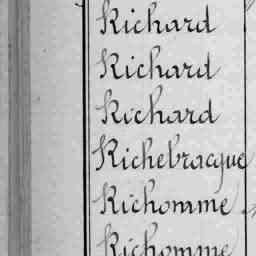 Richard
Richard
Richard
Richebracque
Richomme
Richomme